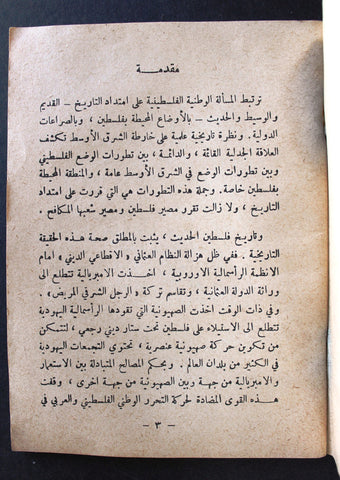 مقدمـــة
ترتبط المسألة الوطنية الفلسطينية على امتداد التاريخ – القديم
والوسيط والحديث – بالأوضاع المحيطة بفلسطين ، وبالصراعات
الدولية . ونظرة تاريخية علمية على خارطة الشرق الأوسط تكشف
العلاقة الجدلية القائمة ، والدائمة ، بين تطورات الوضع الفلسطيني
وبين تطورات الوضع في الشرق الأوسط عامة ، والمنطقة المحيطة
بفلسطين خاصة . وجملة هذه التطورات هي التي قررت على امتداد
التاريخ ، ولا زالت تقرر مصير فلسطين ومصير شعبها المكافح .
وتاريخ فلسطين الحديث ، يثبت بالمطلق صحة هذه الحقيقة
التاريخية . ففي ظل هزالة النظام العثماني ، الاقطاعي الديني ، امام
الانظمة الرأسمالية الاوروبية ، اخذت الامبريالية تتطلع الى
وراثة الدولة العثمانية ، وتقاسم تركة « الرجل الشرقي المريض » .
وفي ذات الوقت اخذت الصهيونية التي تقودها الرأسمالية اليهودية
تتطلع الى الاستيلاء على فلسطين تحت ستار ديني رجعي ، لتتمكن
من تكوين حركة صهيونية عنصرية ، تحتوي التجمعات اليهودية
في الكثير من بلدان العالم . وبحكم المصالح المتبادلة بين الاستعمار
والامبريالية من جهة وبين الصهيونية من جهة اخرى ، وقفت
هذه القوى المضادة لحركة التحرر الوطني الفلسطيني والعربي في
– ٣ –